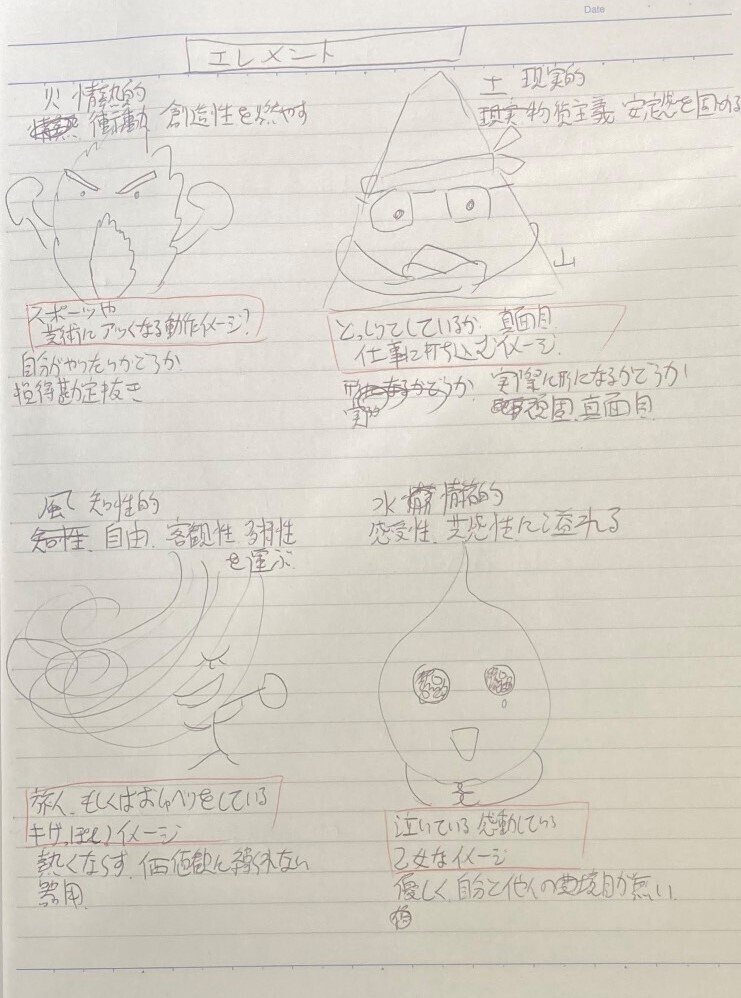 Date
エレメント
火 情熱的
衝動 創造性を燃やす
スポーツや
芸術にアツくなる動作イメージ?
自分がやったらかどうか
損得勘定抜き
土 現実的
現実物質主義 安定感を固める
山
どっしりとしているか 真面目
仕事に打ち込むイメージ
形になるかどうか 実際に形になるかどうか
頑固 真面目
風 知性的
知性 自由 客観性 多様性
を運ぶ
旅人 もしくはおしゃべりをしている
キザっぽいイメージ
熱くならず 価値観に縛られない
器用
水 情緒的
感受性 共感性に溢れる
泣いている 感動している
乙女なイメージ
優しく 自分と他人の境目が無い